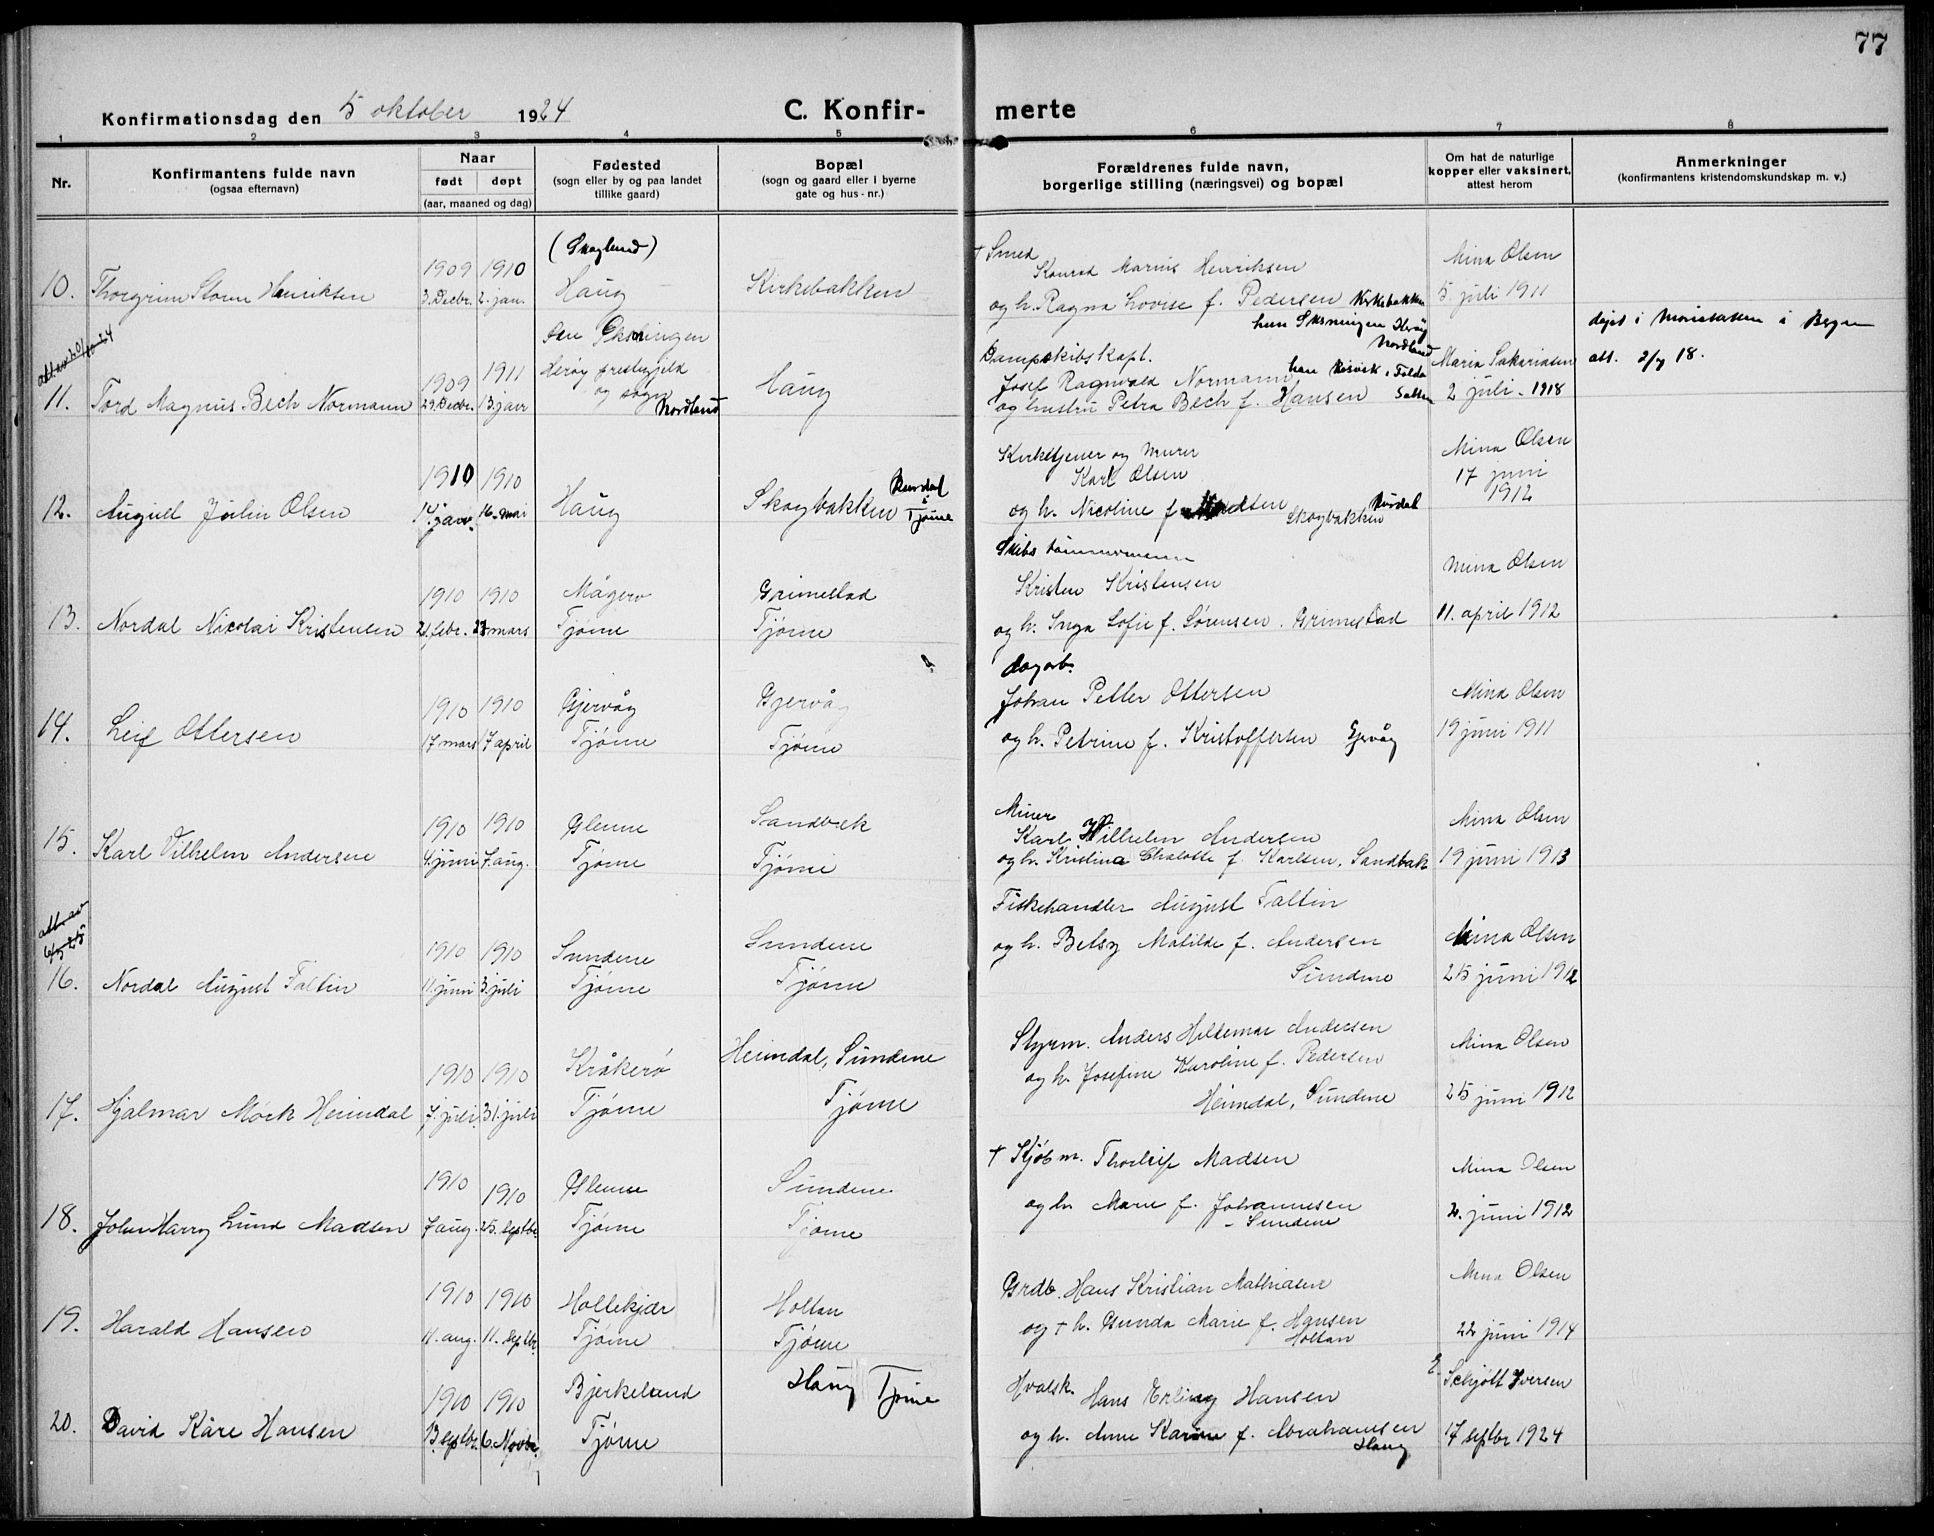 77
Konfirmationsdag den 5 oktober 1924
C. Konfirmerte
1 2 3 4 5 6 7 8
Nr.
Konfirmantens fulde navn
(ogsaa efternavn)
Naar
født døpt
(aar, maaned og dag)
Fødested
(sogn eller by og paa landet
tillike gaard)
Bopæl
(sogn og gaard eller i byerne
gate og hus-nr.)
Forældrenes fulde navn,
borgerlige stilling (næringsvei) og bopæl
Om hat de naturlige
kopper eller vaksinert,
attest herom
Anmerkninger
(konfirmantens kristendomskundskap m. v.)
(Skoglund) † Smed Mina Olsen
1909 1910 Konrad Marius Henriksen
10. Thorgrim Storm Henriksen 3. Decbr. 2. jan. Haug Kirkebakken og h. Ragna Lovise f. Pedersen Kirkebakken 5 juli 1911
hun Skorningen Herøy Nordland
døpt i Mariakirken i Bergen
Dampskibskapt. Maria Sakariasen att. 2/7 18.
1909 1911 Herøy prestegjeld Josef Ragnvald Normann
og sogn Nordland
11. Tord Magnus Bech Normann 29. Decbr. 13. janr Haug og hustru Petra Bech f. Hansen 2 juli - 1918
Kirketjener og Murer Mina Olsen
1910 1910 Karl Olsen 17 juni
12. August Julin Olsen 14. janr. 16. mai Haug Skogbakken Tjøme og h. Nicoline f. Skogbakken 1912
Skibstømmermann Mina Olsen
1910 1910 Mågerø Grimestad Kristen Kristensen
13. Nordal Nicolai Kristensen 21. febr. 28 mars Tjøme Tjøme og h. Inga Sofie f. Sørensen. Grimestad 11. april 1912
Dagarb.
1910 1910 Gjervåg Gjervåg Johan Petter Ottersen Mina Olsen
14. Leif Ottersen 17 mars 17 april Tjøme Tjøme og h. Petrine f. Kristoffersen Gjervåg 19 juni 1911
Murer Mina Olsen
1910 1910 Glenne Sandbæk Karl Wilhelm Andersen
15. Karl Vilhelm Andersen 4. juni 7. aug. Tjøme Tjøme og h. Kristina Chalotte f. Karlsen, Sandbæk 19 juni 1913
Fiskehandler August Taltin
1910 1910 Sundene Sundene og h. Betsy Matilde f. Andersen Mina Olsen
16. Nordal August Taltin 11. juni 3. juli Tjøme Tjøme Sundene 25 juni 1912
Styrm. Anders Hildemar Andersen Mina Olsen
1910 1910 Kråkerø Heimdal, Sundene og h. Josefine Karoline f. Pedersen
17. Hjalmar Mørk Heimdal 7. juli 31. juli Tjøme Tjøme Heimdal, Sundene 25 juni 1912
† Kjøbm. Thorleif Madsen Mina Olsen
1910 1910 Glenne Sundene og h. Marie f. Johannesen
18. John Harry Lund Madsen 7 aug. 25. septbr. Tjøme Tjøme - Sundene 2. juni 1912
Grdb. Hans Kristian Mathiasen Mina Olsen
1910 1910 Hollekjær Holtan
19. Harald Hansen 11. aug. 11. septbr. Tjøme Tjøme og † h. Gunda Marie f. Hansen Holtan 22 juni 1914
1910 1910 Bjerkelund Haug Tjøme Hvalsk. Hans Erling Hansen E. Schjøtt Iversen
20. David Kåre Hansen 13 septbr. 6. Novbr. Tjøme og h. Anne Karine f. Abrahamsen Haug 17 septbr 1924